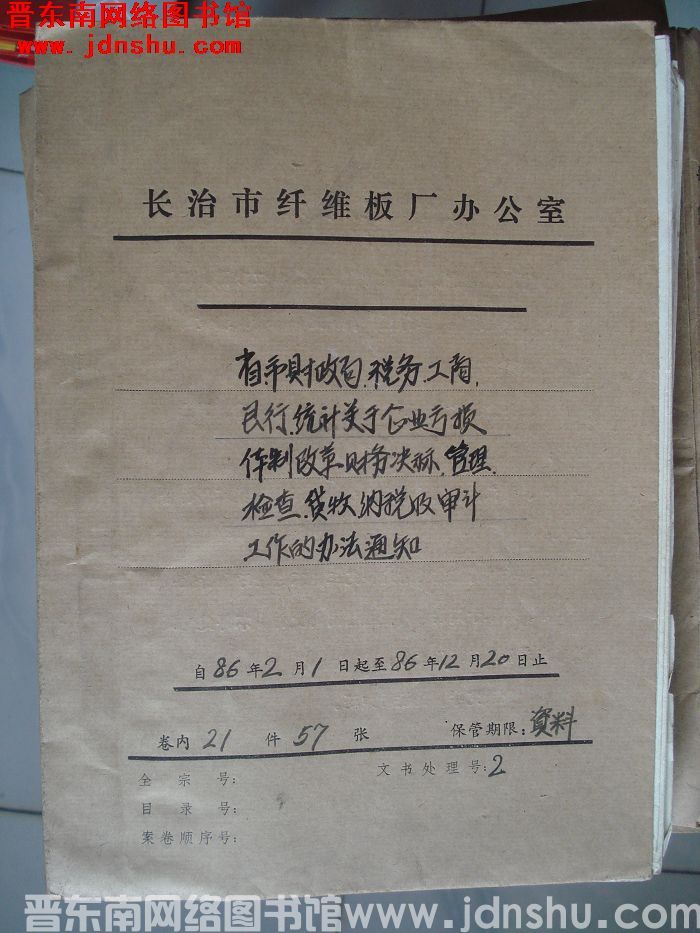 晋东南网络图书馆
www.jdnshu.com
长治市纤维板厂办公室
省市财政局、税务、工商、
民行、统计关于企业亏损
体制改革、财务决标、管理、
检查、货收、纳税及审计
工作的办法通知
自86年2月1日起至86年12月20日止
卷内21件57张 保管期限:资料
全宗号: 文书处理号:2
目录号:
案卷顺序号:
晋东南网络图书馆www.jdnshu.com